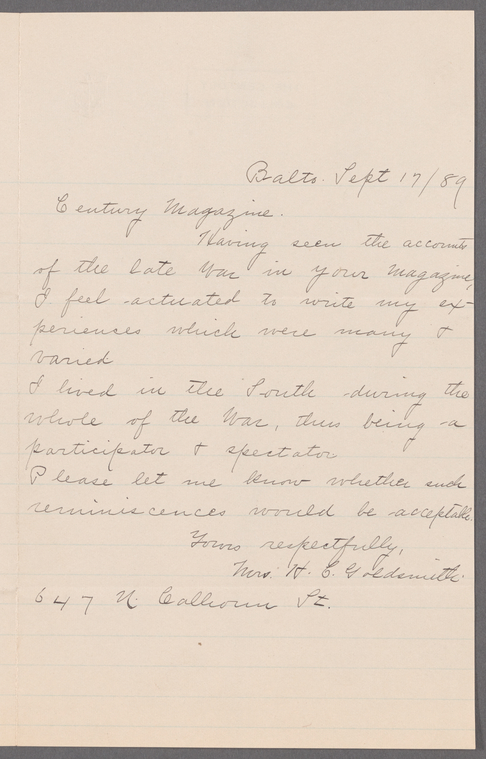 Balto. Sept 17/89
Century Magazine.
Having seen the accounts
of the late War in your Magazine,
I feel actuated to write my ex-
periences which were many &
varied
I lived in the South during the
whole of the War, thus being a
participator & spectator
Please let me know whether such
reminiscences would be acceptable.
Yours respectfully,
Mrs. H. C. Goldsmith.
647 N. Calhoun St.